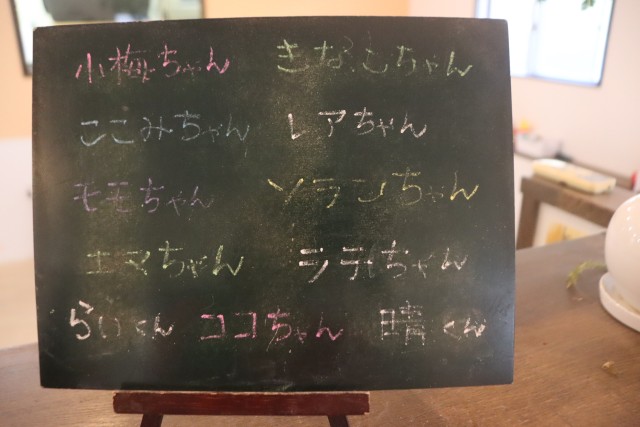 小梅ちゃん きなこちゃん
ここみちゃん レアちゃん
モモちゃん ソランちゃん
エマちゃん ラテちゃん
らいくん ココちゃん 晴くん